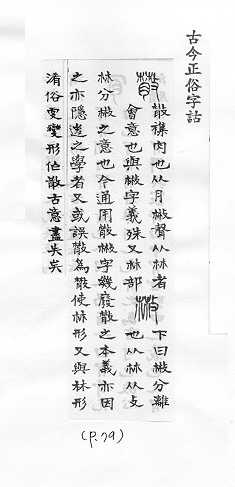 古今正俗字詁
𢿱 散襍肉也从月㪔聲从𣏟者
會意也與㪔字義殊又𣏟部
㪔 下曰㪔分離
也从𣏟从攴
𣏟分㪔之意也今通用散㪔字幾廢散之本義亦因
之亦隱逸之學者又或誤散為㪚使𣏟形又與林形
淆俗更變形作散古意盡失矣
(P.79)